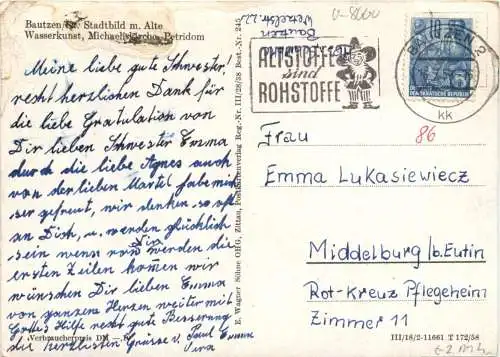 Bautzen/ Stadtbild m. Alte
Wasserkunst, Michaeliskirche, Petridom
Meine liebe gute Schwester!
recht herzlichen Dank für
die liebe Gratulation von
Dir lieben Schwester Emma
durch die liebe Agnes auch
von der lieben Martel habe mich
ser gefreut, wir denken so oft
an Dich, u. werden glücklich
sein wenn von Dir werden die
ersten Zeilen komen wir
wünschen Dir lieben Emma
von ganzen Herzen weiter mit
Gottes Hilfe recht gute Besserung
die herzlichsten Grüsse v. Paul Emma
Vira
Verbraucherpreis DM
E. Wagner Söhne OHG, Zittau, Postkartenverlag Reg.-Nr. III/28/58 Best.-Nr. 245
Bautzen
ALTSTOFFE
sind
ROHSTOFFE
BAUTZEN 2
kk
DEUTSCHE DEMOKRATISCHE REPUBLIK
86
Frau
Emma Lukasiewiecz
Middelburg b. Eutin
Rot-Kreuz Pflegeheim
Zimmer 11
III/18/2-11661 T 172/58